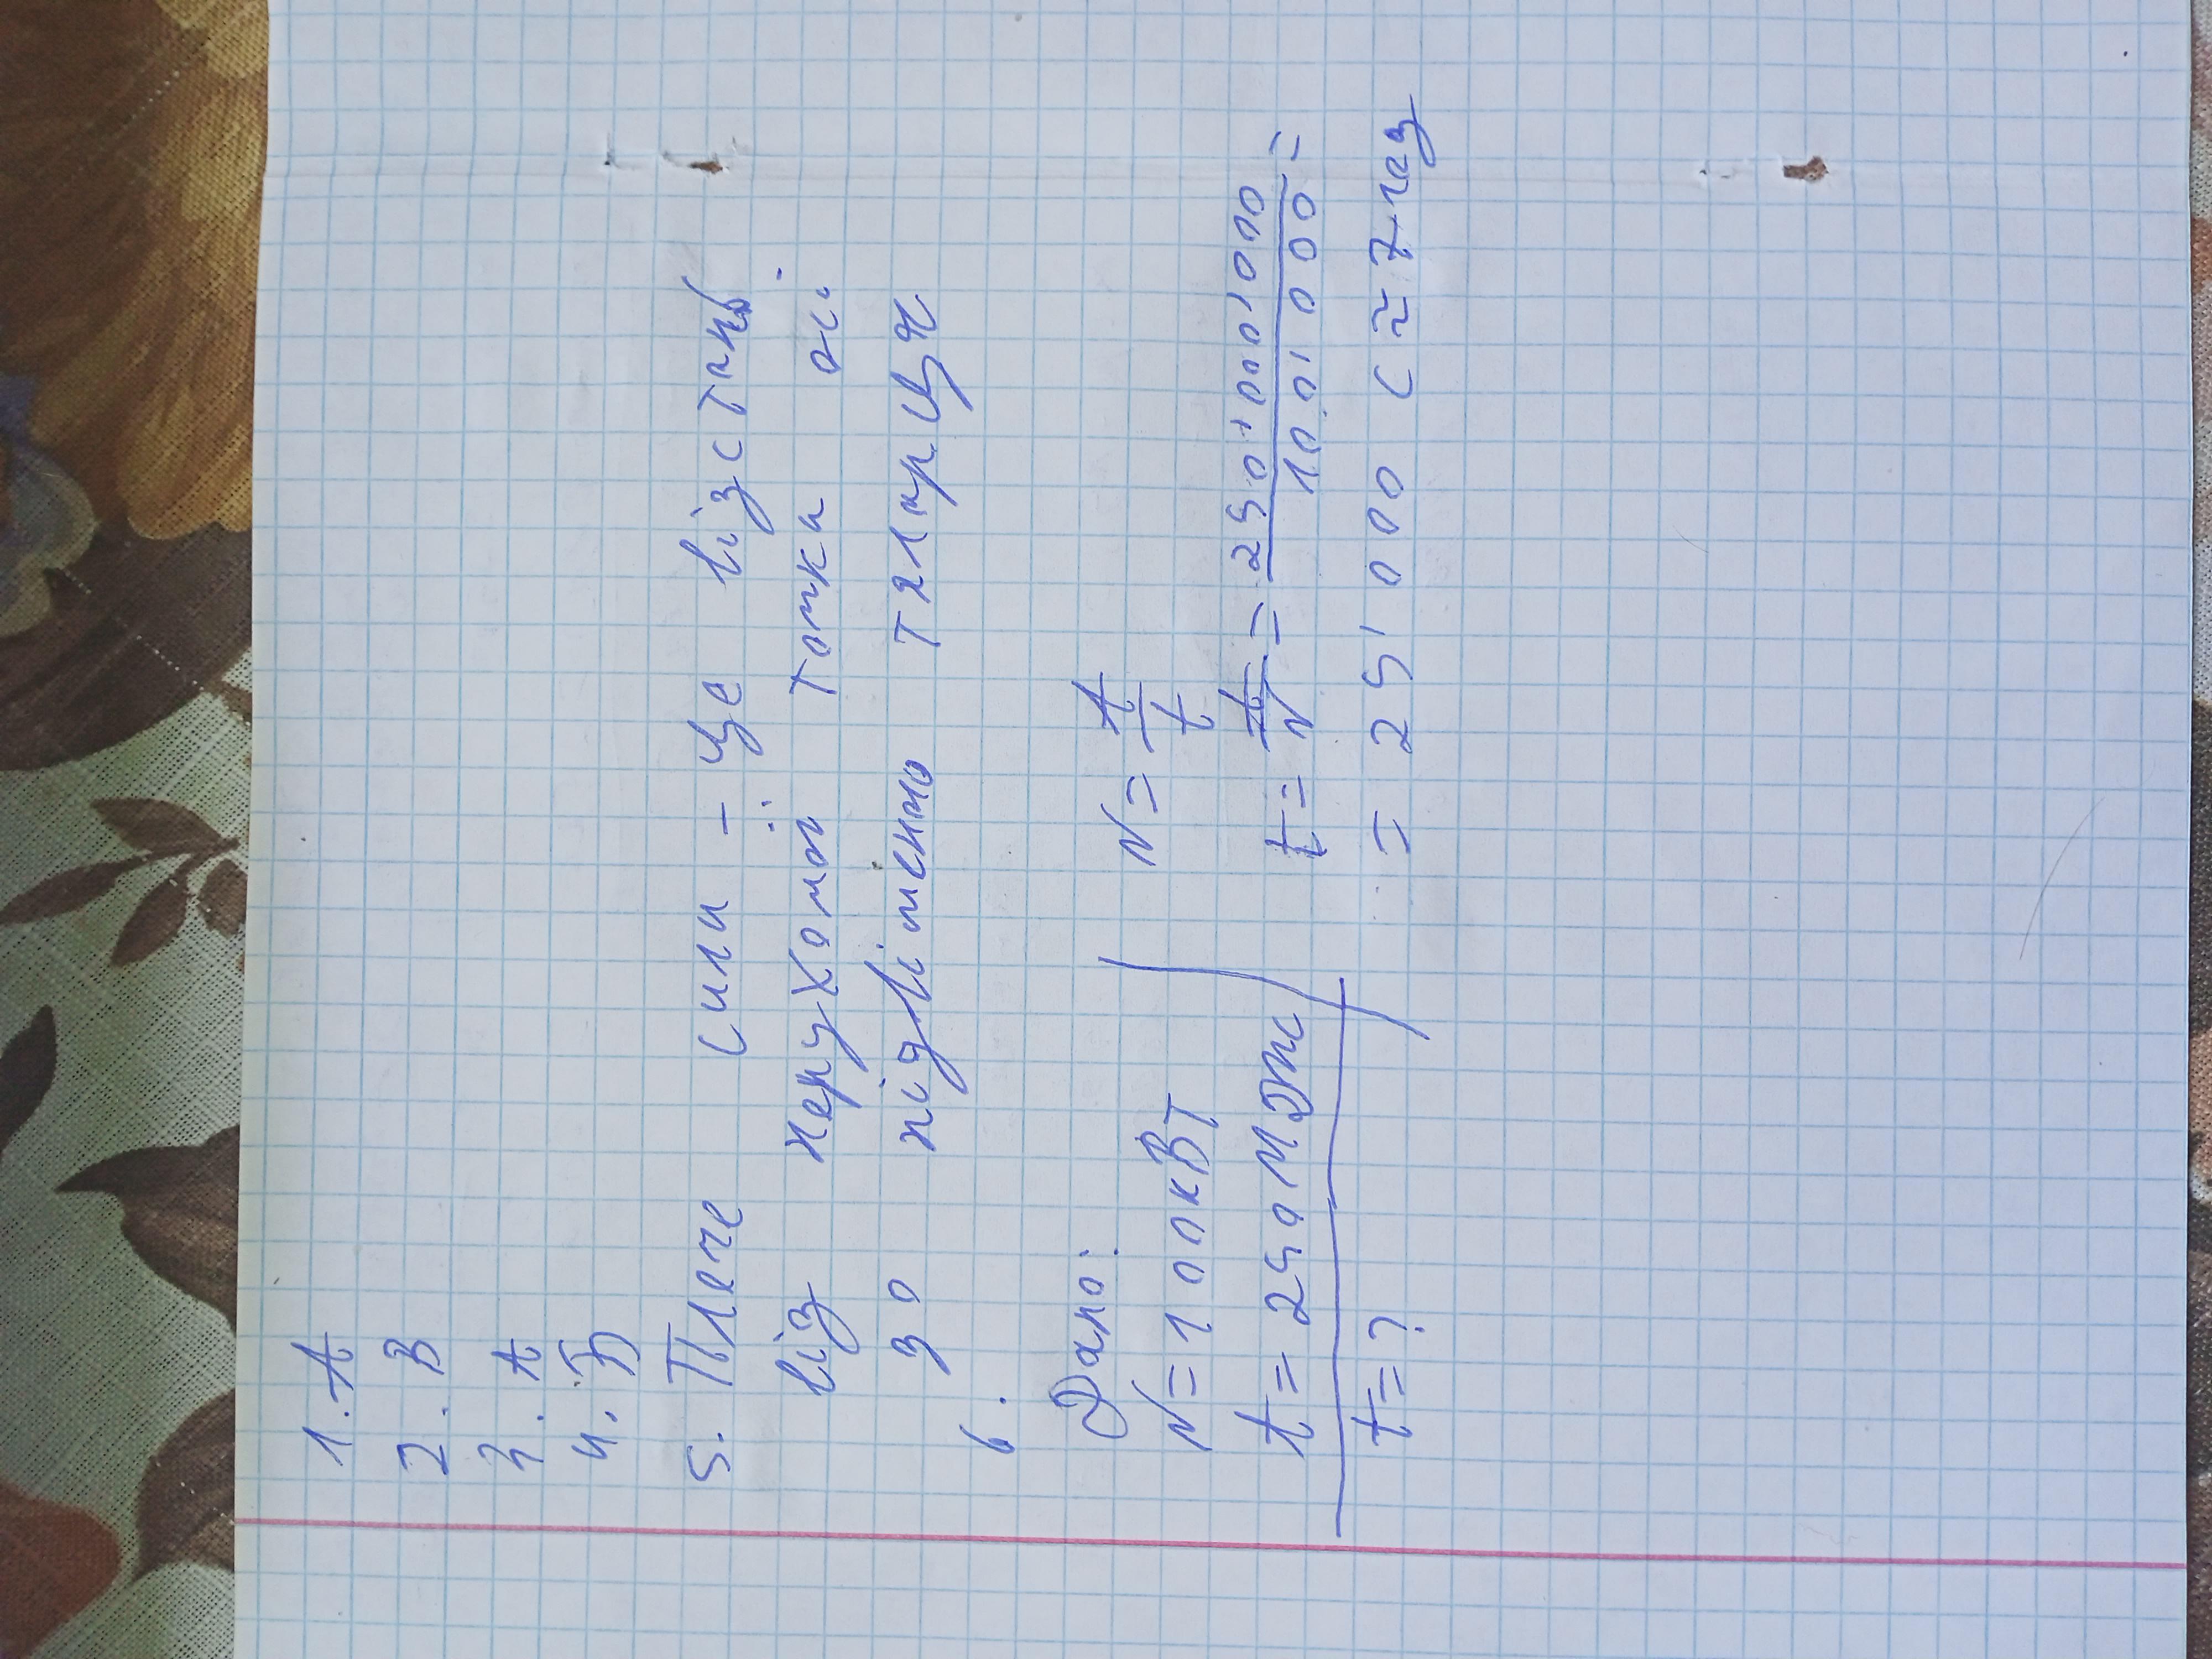 1. А
2. В
3. А
4. Б
5. Плече сили – це відстань
від нерухомої точки осі
до підвішеного тягарця
6.
Дано:
N = 100 кВт
A = 250 МДж
t = ?
N = A/t
t = A/N =
= 25'000 с ≈ 7 год